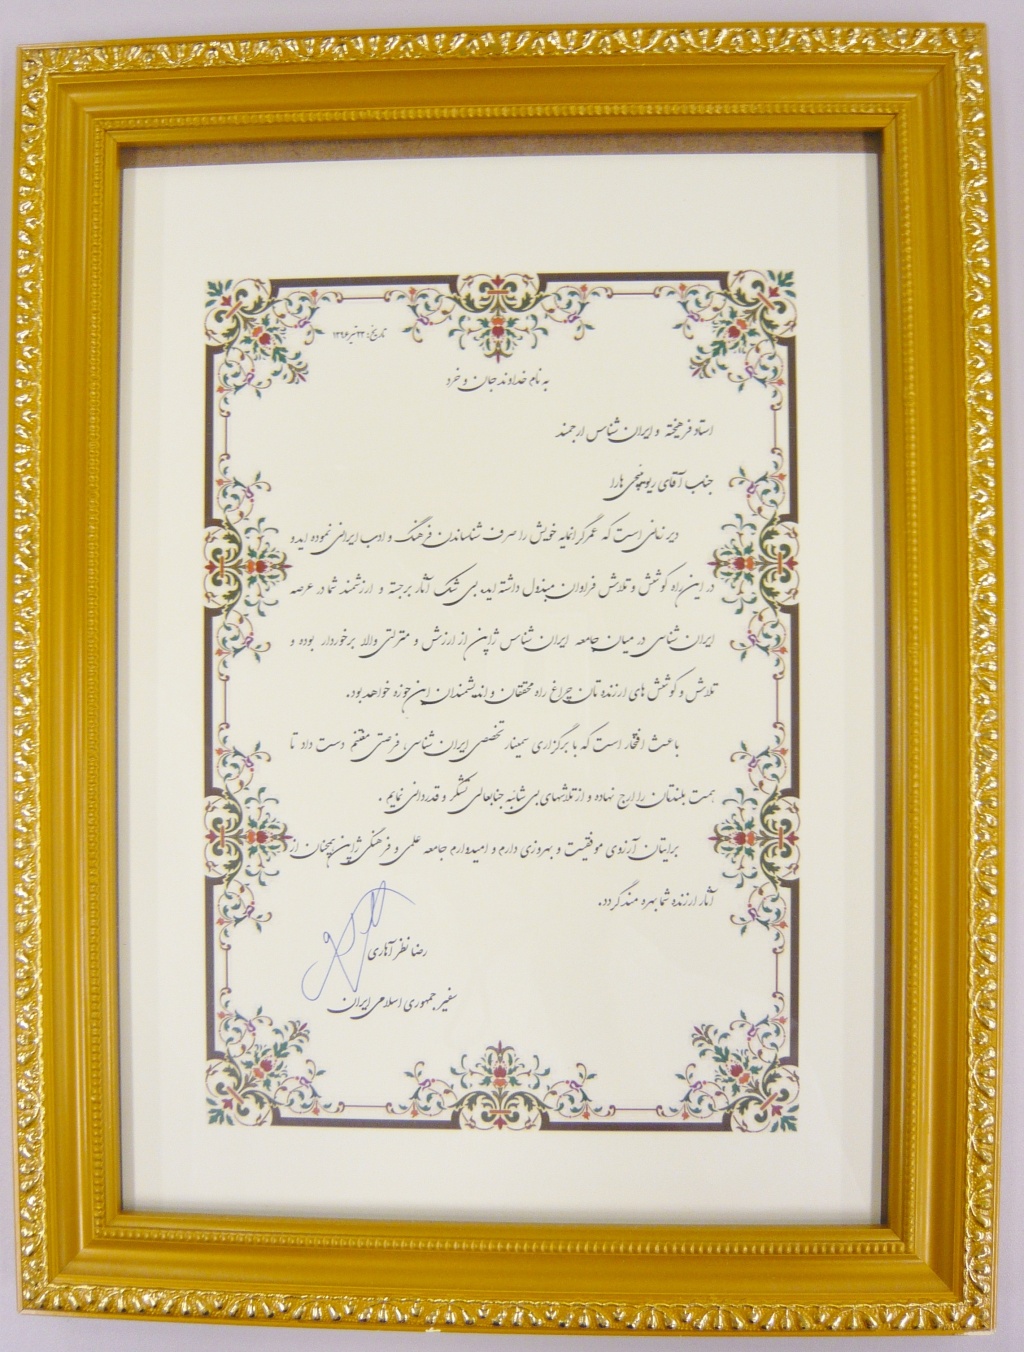 تاریخ: ۲۲ تیر ۱۳۹۶
به نام خداوند جان و خرد
استاد فرهیخته و ایران شناس ارجمند
جناب آقای ریوییچی هارا
دیر زمانی است که عمر گرانمایه خویش را صرف شناساندن فرهنگ و ادب ایرانی نموده اید و
در این راه کوشش و تلاش فراوان مبذول داشته اید، بی شک آثار برجسته و ارزشمند شما در عرصه
ایران شناسی در میان جامعه ایران شناس ژاپن از ارزش و منزلتی والا برخوردار بوده و
تلاش و کوشش های ارزنده تان چراغ راه محققان و اندیشمندان این حوزه خواهد بود.
باعث افتخار است که با برگزاری سمینار تخصصی ایران شناسی، فرصتی مغتنم دست داد تا
همت بلندتان را ارج نهاده و از تلاشهای بی شائبه جنابعالی تشکر و قدردانی نمایم.
برایتان آرزوی موفقیت و بهروزی دارم و امیدوارم جامعه علمی و فرهنگی ژاپن همچنان از
آثار ارزنده شما بهره مند گردد.
رضا نظر آهاری
سفیر جمهوری اسلامی ایران